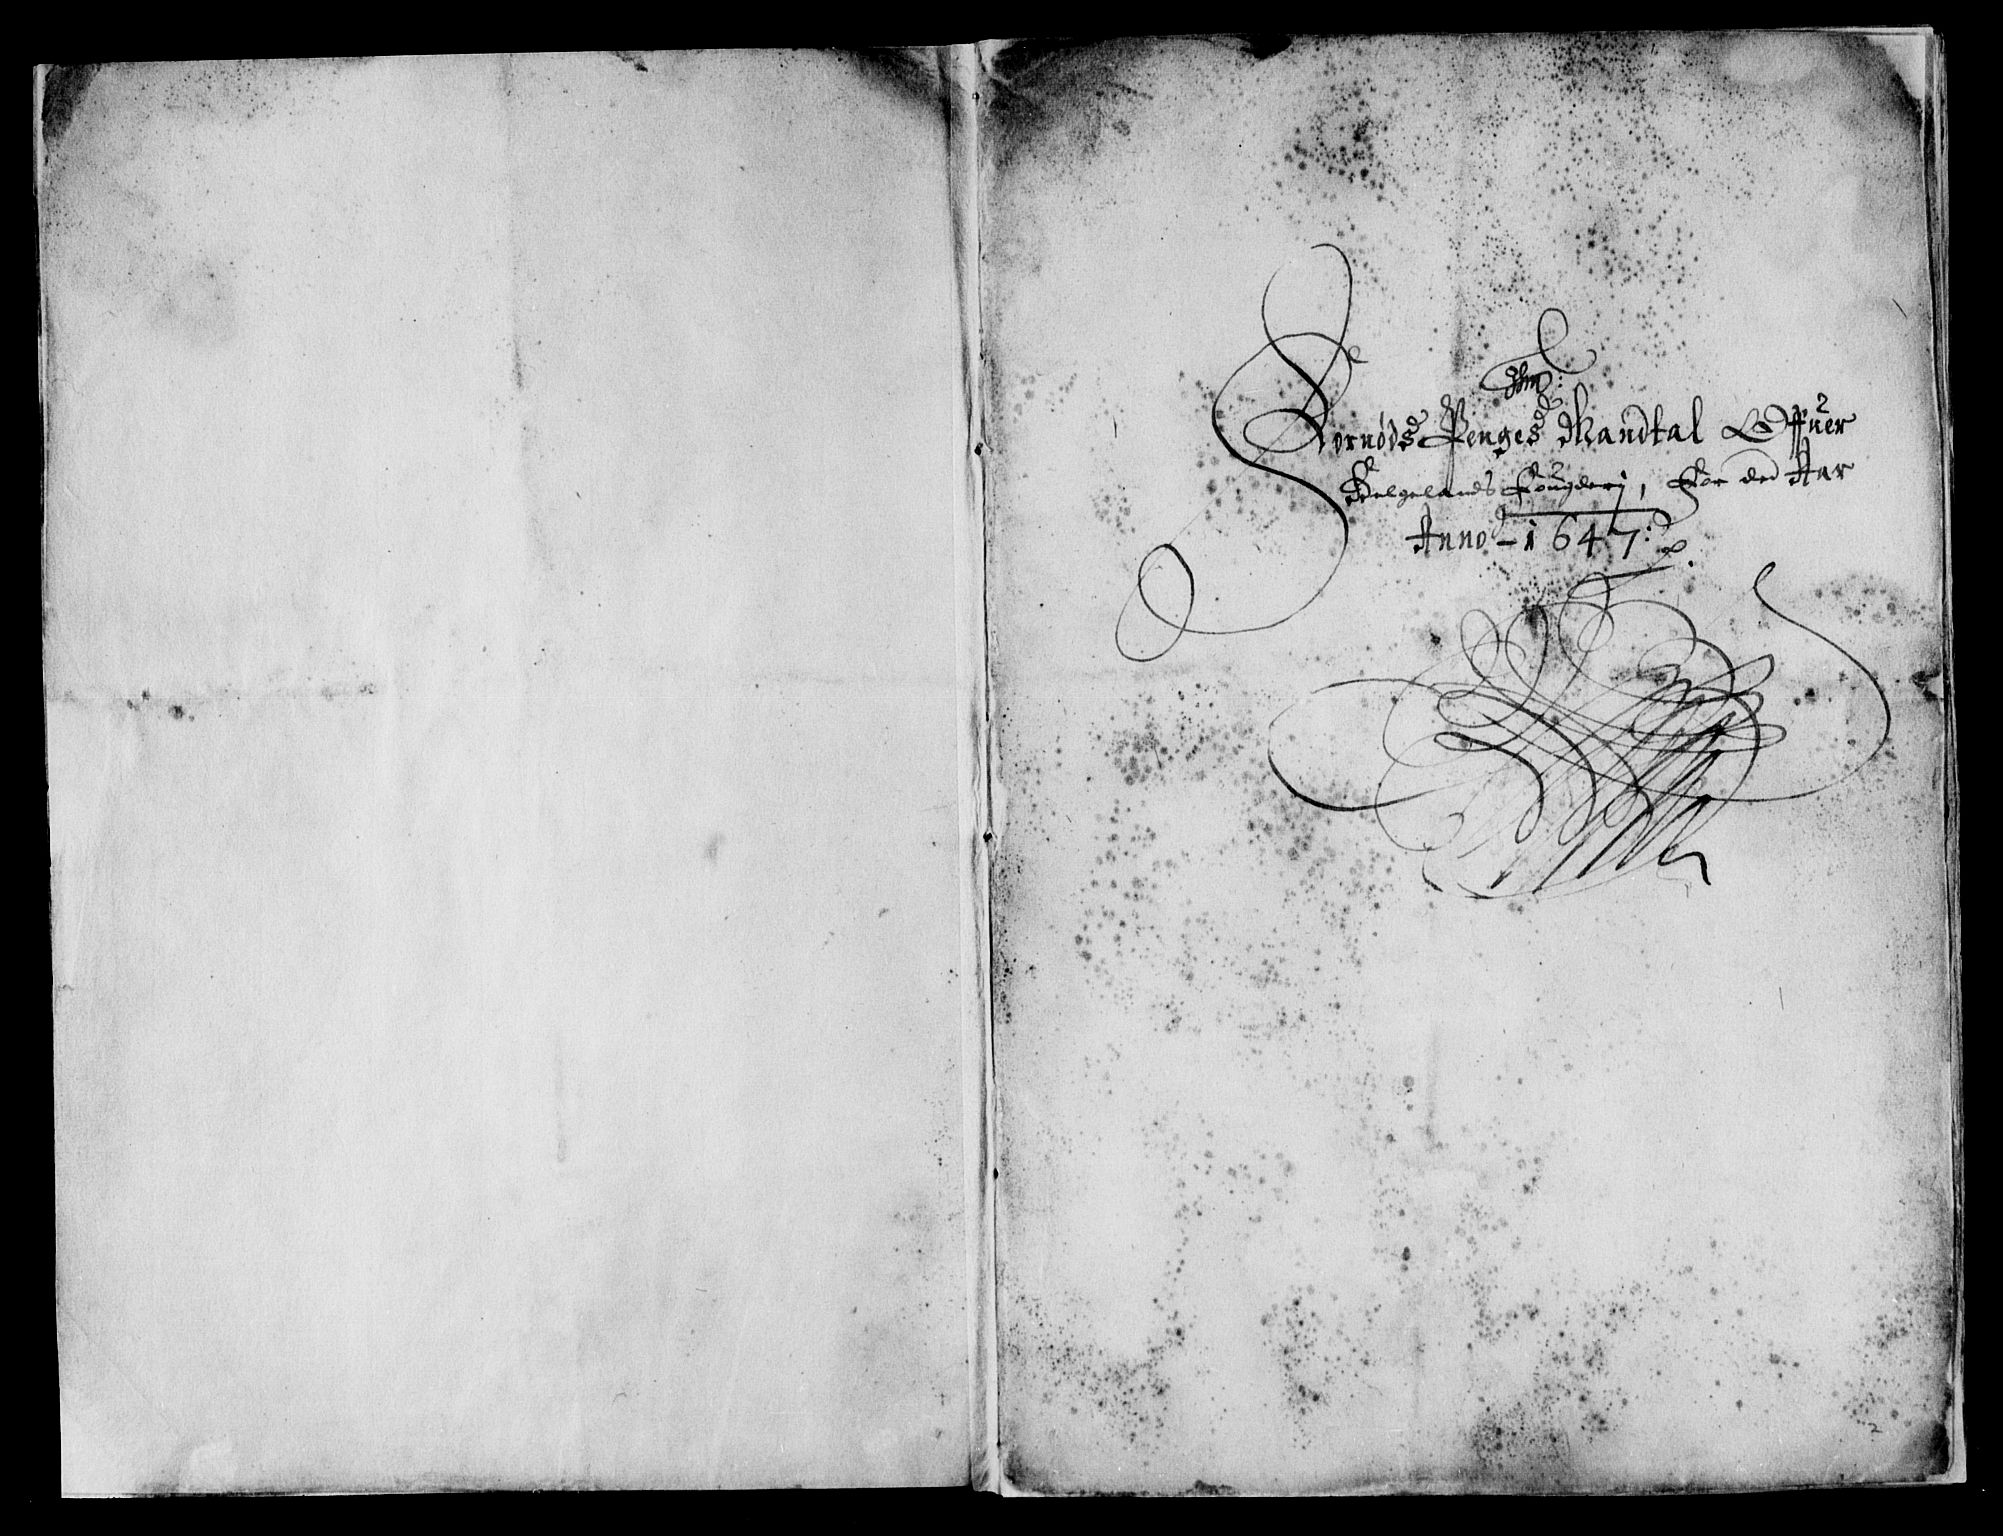 Fornøds Penges Mandtal Offuer
Helgelands Fougderj, For ded Aar
Anno - 1647:
2